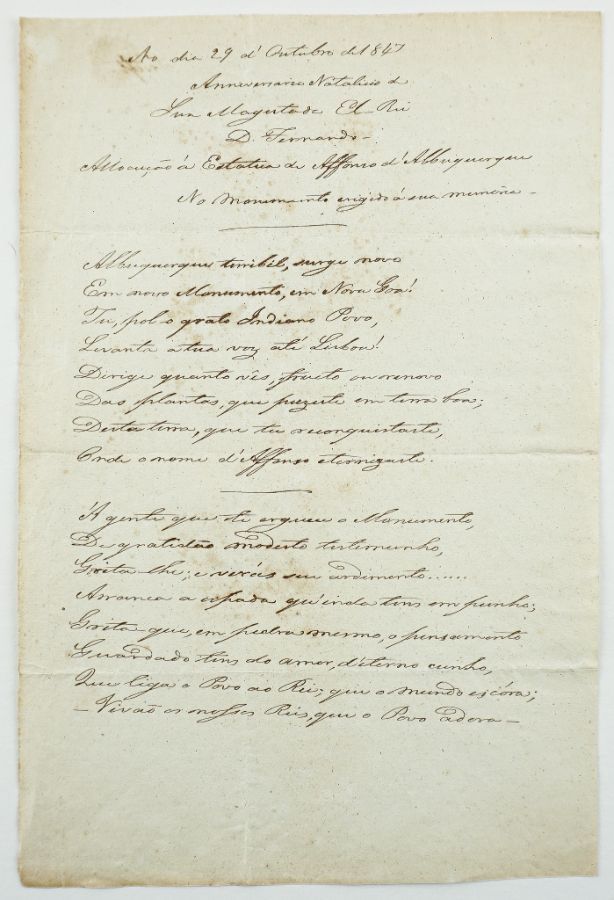 No dia 29 d'Outubro de 1847
Anniversario Natalicio de
Sua Magestade El Rei
D. Fernando
Allocução á Estatua de Affonso d'Albuquerque
No Monumento erigido á sua memoria
Albuquerque terribil, surge novo
Em novo Monumento, em Nova Goa!
Tu, pol-o grato Indiano Povo,
Levanta a tua voz até Lisboa!
Dirige quanto vês, fructo ou renovo
Das plantas, que puzeste em terra boa;
Desta terra, que tu reconquistaste,
Onde o nome d'Affonso eternizaste.
'A gente que te ergueu o Monumento,
De gratidão modesto testemunho,
Grita-lhe; e verás seu ardimento......
Arranca a espada qu'inda tens em punho;
Grita que, em pedra mesmo, o pensamento
Guardado tens do amor, d'eterno cunho,
Que liga o Povo ao Rei; que o mundo escóra;
— Vivão os nossos Reis, que o Povo adora —